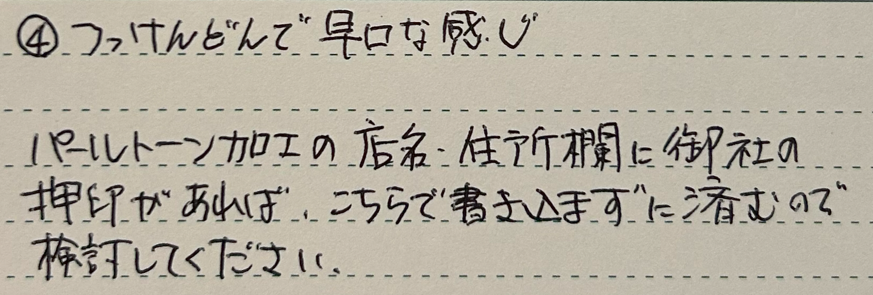 ④つっけんどんで早口な感じ
パールトーン加工の店名・住所欄に御社の
押印があれば、こちらで書き込まずに済むので
検討してください。